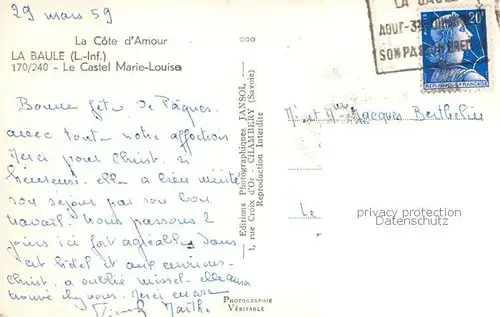 29 mars 59
La Côte d'Amour
LA BAULE (L.-Inf.)
170/240 - Le Castel Marie-Louise
Bonne fête de Pâques
avec toute notre affection
Merci pour Christ. si
heureuse. elle a bien mérité
son séjour par son bon
travail. Nous passons 2
jours ici fort agréables dans
cet hôtel et aux environs.
Christ. a oublié missel.
trouvé chez vous. Merci encore
Marthe
Editions Photographiques JANSOL
1, rue Croix d'Or - CHAMBERY (Savoie)
Reproduction Interdite
PHOTOGRAPHIE
VÉRITABLE
LA BAULE
AOUT-
SON
20F
REPUBLIQUE FRANÇAISE
Jacques Berthelin
Le
privacy protection
Datenschutz